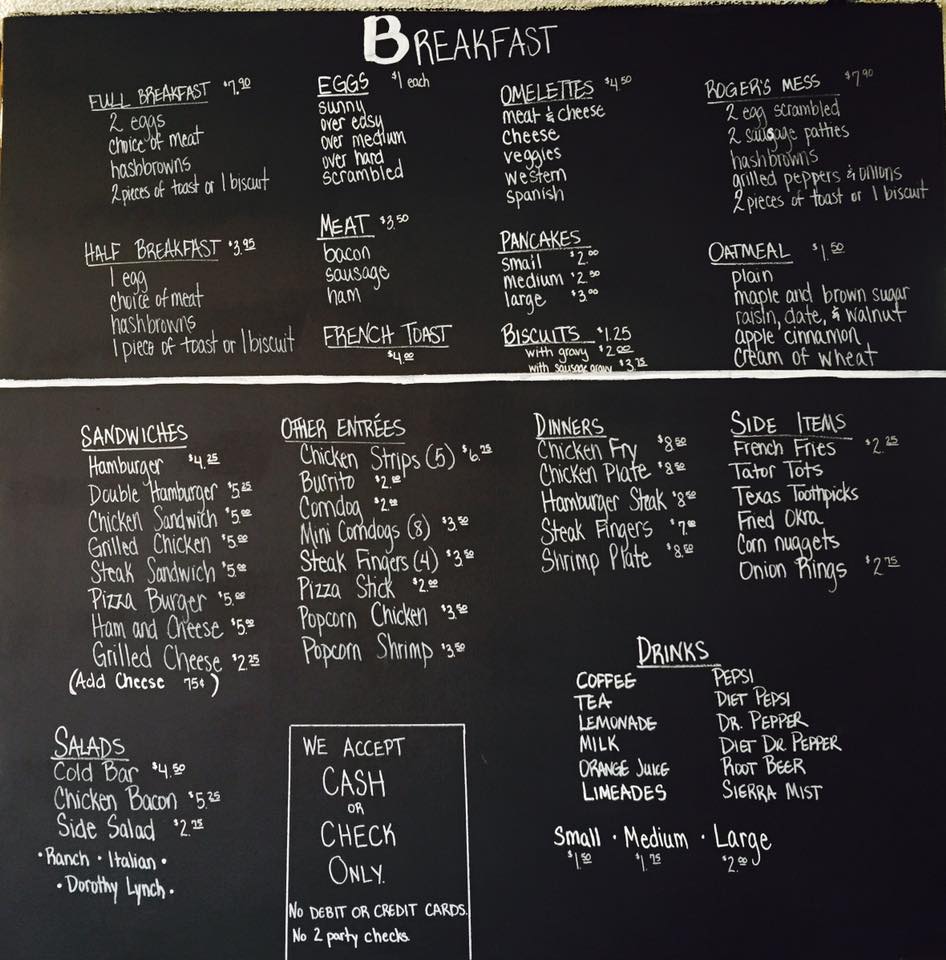 BREAKFAST
FULL BREAKFAST $7.90
2 eggs
choice of meat
hashbrowns
2 pieces of toast or 1 biscuit
HALF BREAKFAST $3.95
1 egg
choice of meat
hashbrowns
1 piece of toast or 1 biscuit
EGGS $1 each
sunny
over easy
over medium
over hard
scrambled
MEAT $3.50
bacon
sausage
ham
FRENCH TOAST
$4.00
OMELETTES $4.50
meat & cheese
cheese
veggies
western
spanish
PANCAKES
small $2.00
medium $2.50
large $3.00
BISCUITS $1.25
with gravy $2.00
with sausage gravy $3.75
ROGER'S MESS $7.90
2 egg scrambled
2 sausage patties
hashbrowns
grilled peppers & onions
2 pieces of toast or 1 biscuit
OATMEAL $1.50
plain
maple and brown sugar
raisin, date, & walnut
apple cinnamon
cream of wheat
SANDWICHES
Hamburger $4.25
Double Hamburger $5.25
Chicken Sandwich $5.00
Grilled Chicken $5.00
Steak Sandwich $5.00
Pizza Burger $5.00
Ham and Cheese $5.00
Grilled Cheese $2.25
(Add Cheese 75¢)
SALADS
Cold Bar $4.50
Chicken Bacon $5.25
Side Salad $2.75
• Ranch • Italian •
• Dorothy Lynch •
OTHER ENTRÉES
Chicken Strips (5) $6.75
Burrito $2.00
Corndog $2.00
Mini Corndogs (8) $3.50
Steak Fingers (4) $3.50
Pizza Stick $2.00
Popcorn Chicken $3.50
Popcorn Shrimp $3.50
WE ACCEPT
CASH
OR
CHECK
ONLY.
NO DEBIT OR CREDIT CARDS.
No 2 party checks.
DINNERS
Chicken Fry $8.50
Chicken Plate $8.50
Hamburger Steak $8.50
Steak Fingers $7.00
Shrimp Plate $8.50
SIDE ITEMS
French Fries $2.25
Tator Tots
Texas Toothpicks
Fried Okra
Corn nuggets
Onion Rings $2.75
DRINKS
COFFEE
TEA
LEMONADE
MILK
ORANGE JUICE
LIMEADES
PEPSI
DIET PEPSI
DR. PEPPER
DIET DR. PEPPER
ROOT BEER
SIERRA MIST
Small • Medium • Large
$1.50 $1.75 $2.00